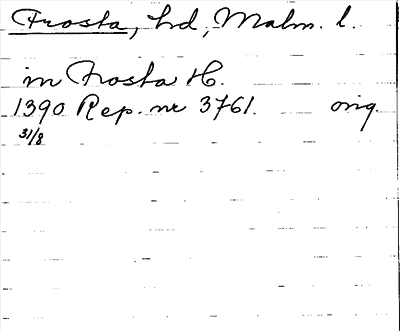 Frosta, hd, Malm. l.
in Frosta H.
1390 Rep. nr 3761. orig.
31/8